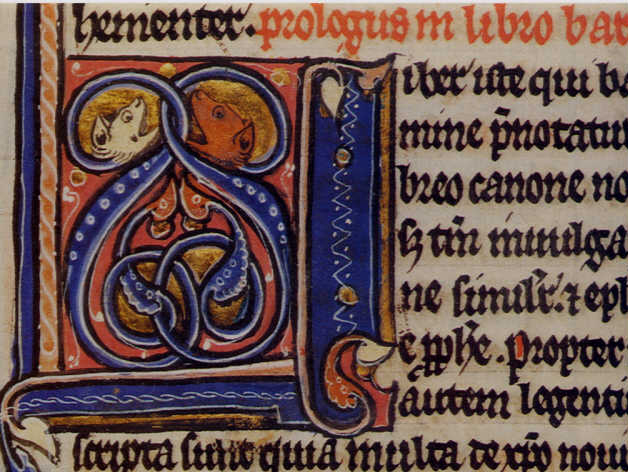 hementer. prologus in libro bar
Liber iste qui ba
mine p̄notatu
breo canone no
sꝫ tm̄ in uulga
ne simil'r. ⁊ epl
e ꝓphe. Propter
autem legenti
scripta sunt quia multa de xp̄o noui